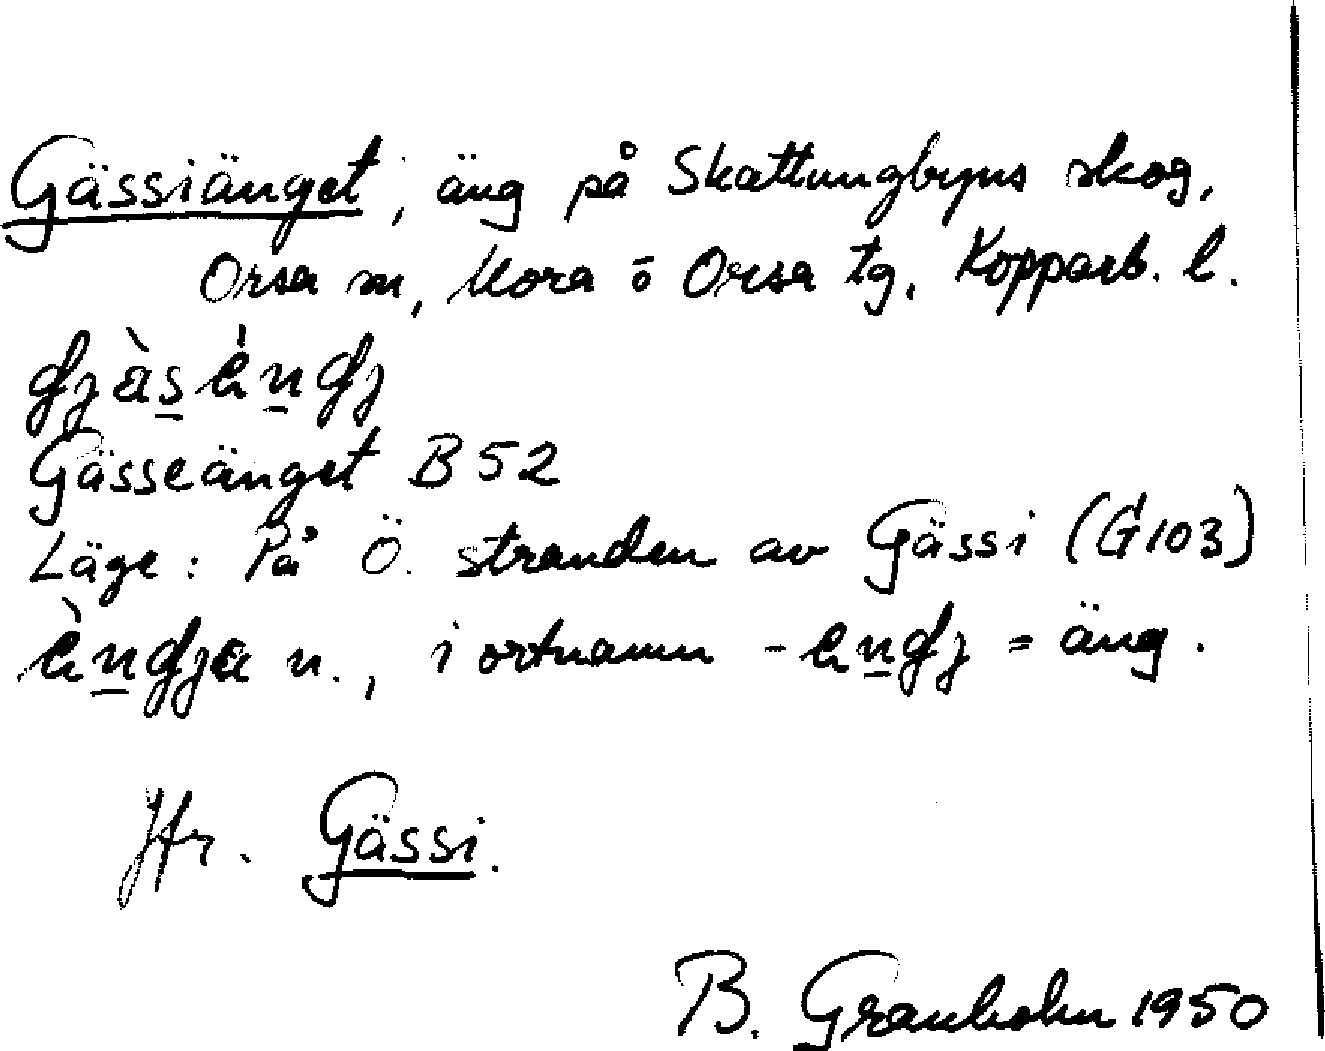 Gässiänget, äng på Skattungbyns skog,
Orsa sn, Mora o Orsa tg, Kopparb. l.
Gässeänget B 52
Läge: På Ö. stranden av Gässi (G103)
n., i ortnamn = äng.
Jfr. Gässi.
B. Granholm 1950